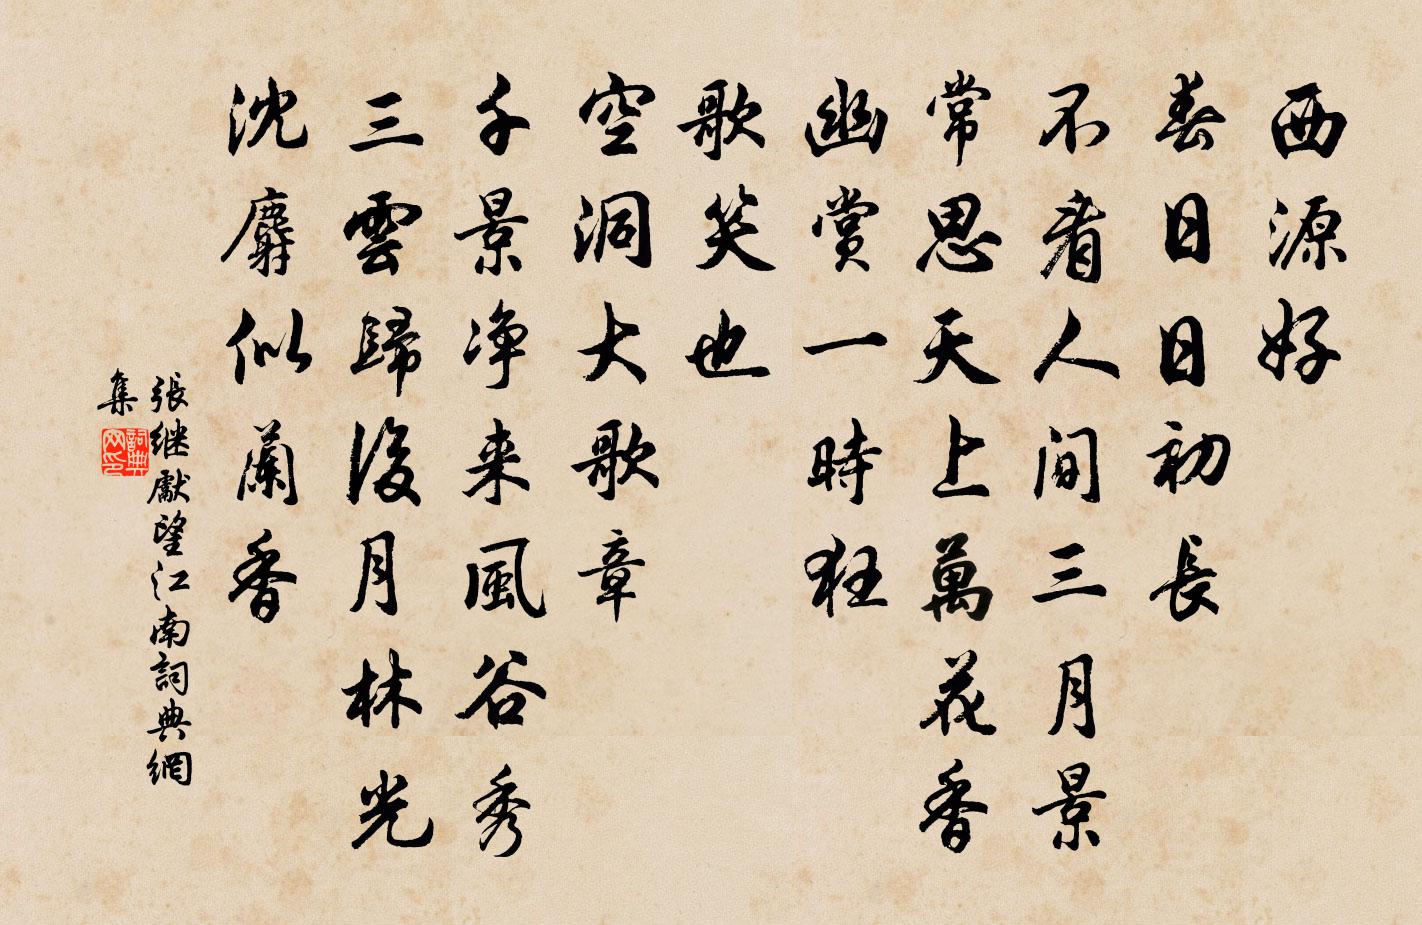 西源好
春日日初長
不看人间三月景
常思天上萬花香
幽赏一時狂
歌笑也
空洞大歌章
千景净来風谷秀
三雲歸後月林光
沈麝似蘭香
張继獻望江南詞典網
集
詞典
网印